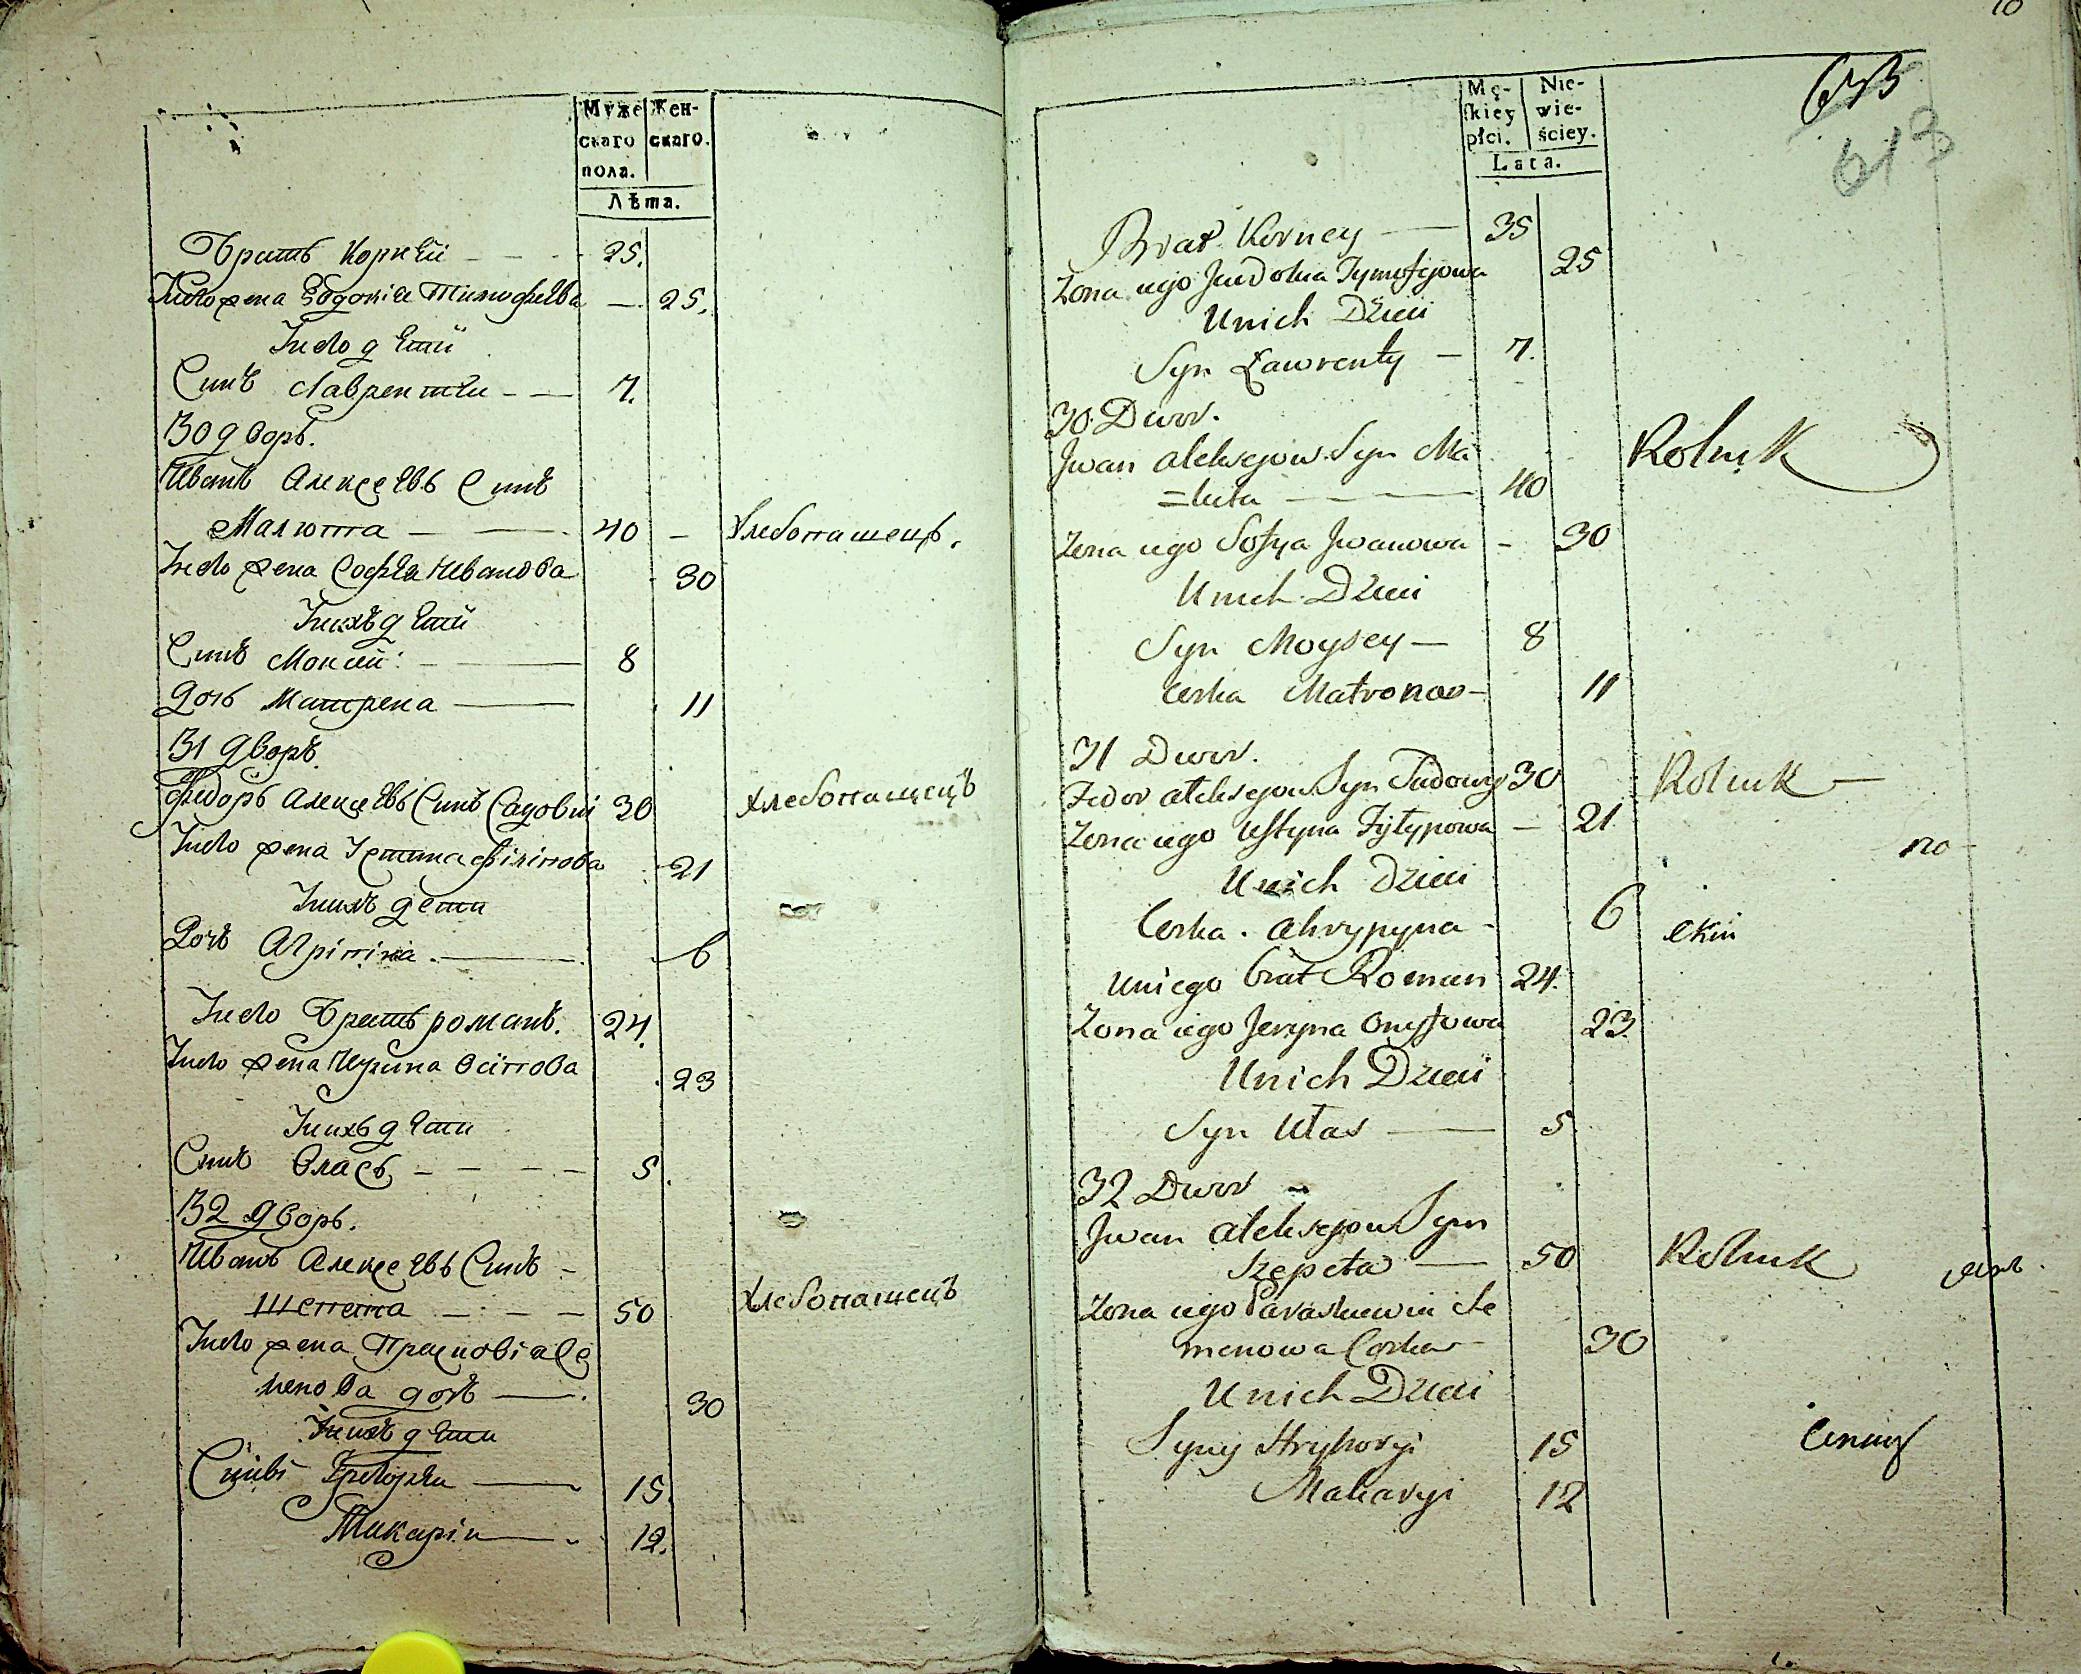 Муже
скаго
пола.
Жен-
скаго.
Лѣта.
Братъ Корнѣй - - - 25.
Унего жена Евдокія Тимофѣева — 25.
Унего дѣти
Синъ Лаврентѣи - — 7.
30 дворъ.
Иванъ Алексѣевъ Синъ
Малюта — — 40 - Хлебопашецъ.
Унего жена Софѣя Иванова 30
Унихъ дѣти
Синъ Мокій - — 8
Дочъ Матрена — 11
31 дворъ.
Федоръ Алексѣевъ Синъ Садовій 30 Хлебопашецъ
Унего жена Устина Філіпова 21
Унихъ дети
Дочъ Агріпина — 6
Унего Братъ романъ. 24.
Унего жена Ирина Осіпова 23
Унихъ дѣти
Синъ Власъ - - - - 5.
32 дворъ.
Иванъ Алексѣевъ Синъ -
Шепета - - - 50 Хлебопашецъ
Унего жена Прасковія Се
менова дочъ — 30
Унихъ дѣти
Сині Григорѣи — 15.
Макаріи — 12.
10
Mę-
skiey
płci.
Nie-
wie-
ściey.
Lata.
613
Brat Korney — 35
Zona iego Jewdokia Tymofijowa 25
Unich Dzieci
Syn Ławrenty — 7.
30 Dwor.
Jwan Aleksejow Syn Ma Rolnik
=luta — — — 40
Zona iego Sofya Jwanowa - 30
Unich Dzieci
Syn Moysey — 8
Corka Matrona - 11
31 Dwor.
Fedor Aleksejow Syn Sadowy 30 Rolnik —
Zona iego Ustyna Fyłypowa — 21
no -
Unich Dzieci
Corka. Ahrypyna - 6
Uniego brat Roman 24.
Zona iego Jeryna Osypowa 23
Unich Dzieci
Syn Ułas — 5
32 Dwor
Jwan Aleksejow Syn
Szepeta — 50 Rolnik
Zona iego Paraskiewia Se
menowa Corka - 30
Unich Dzieci
Syny Hryhoryi 15
Makaryi 12